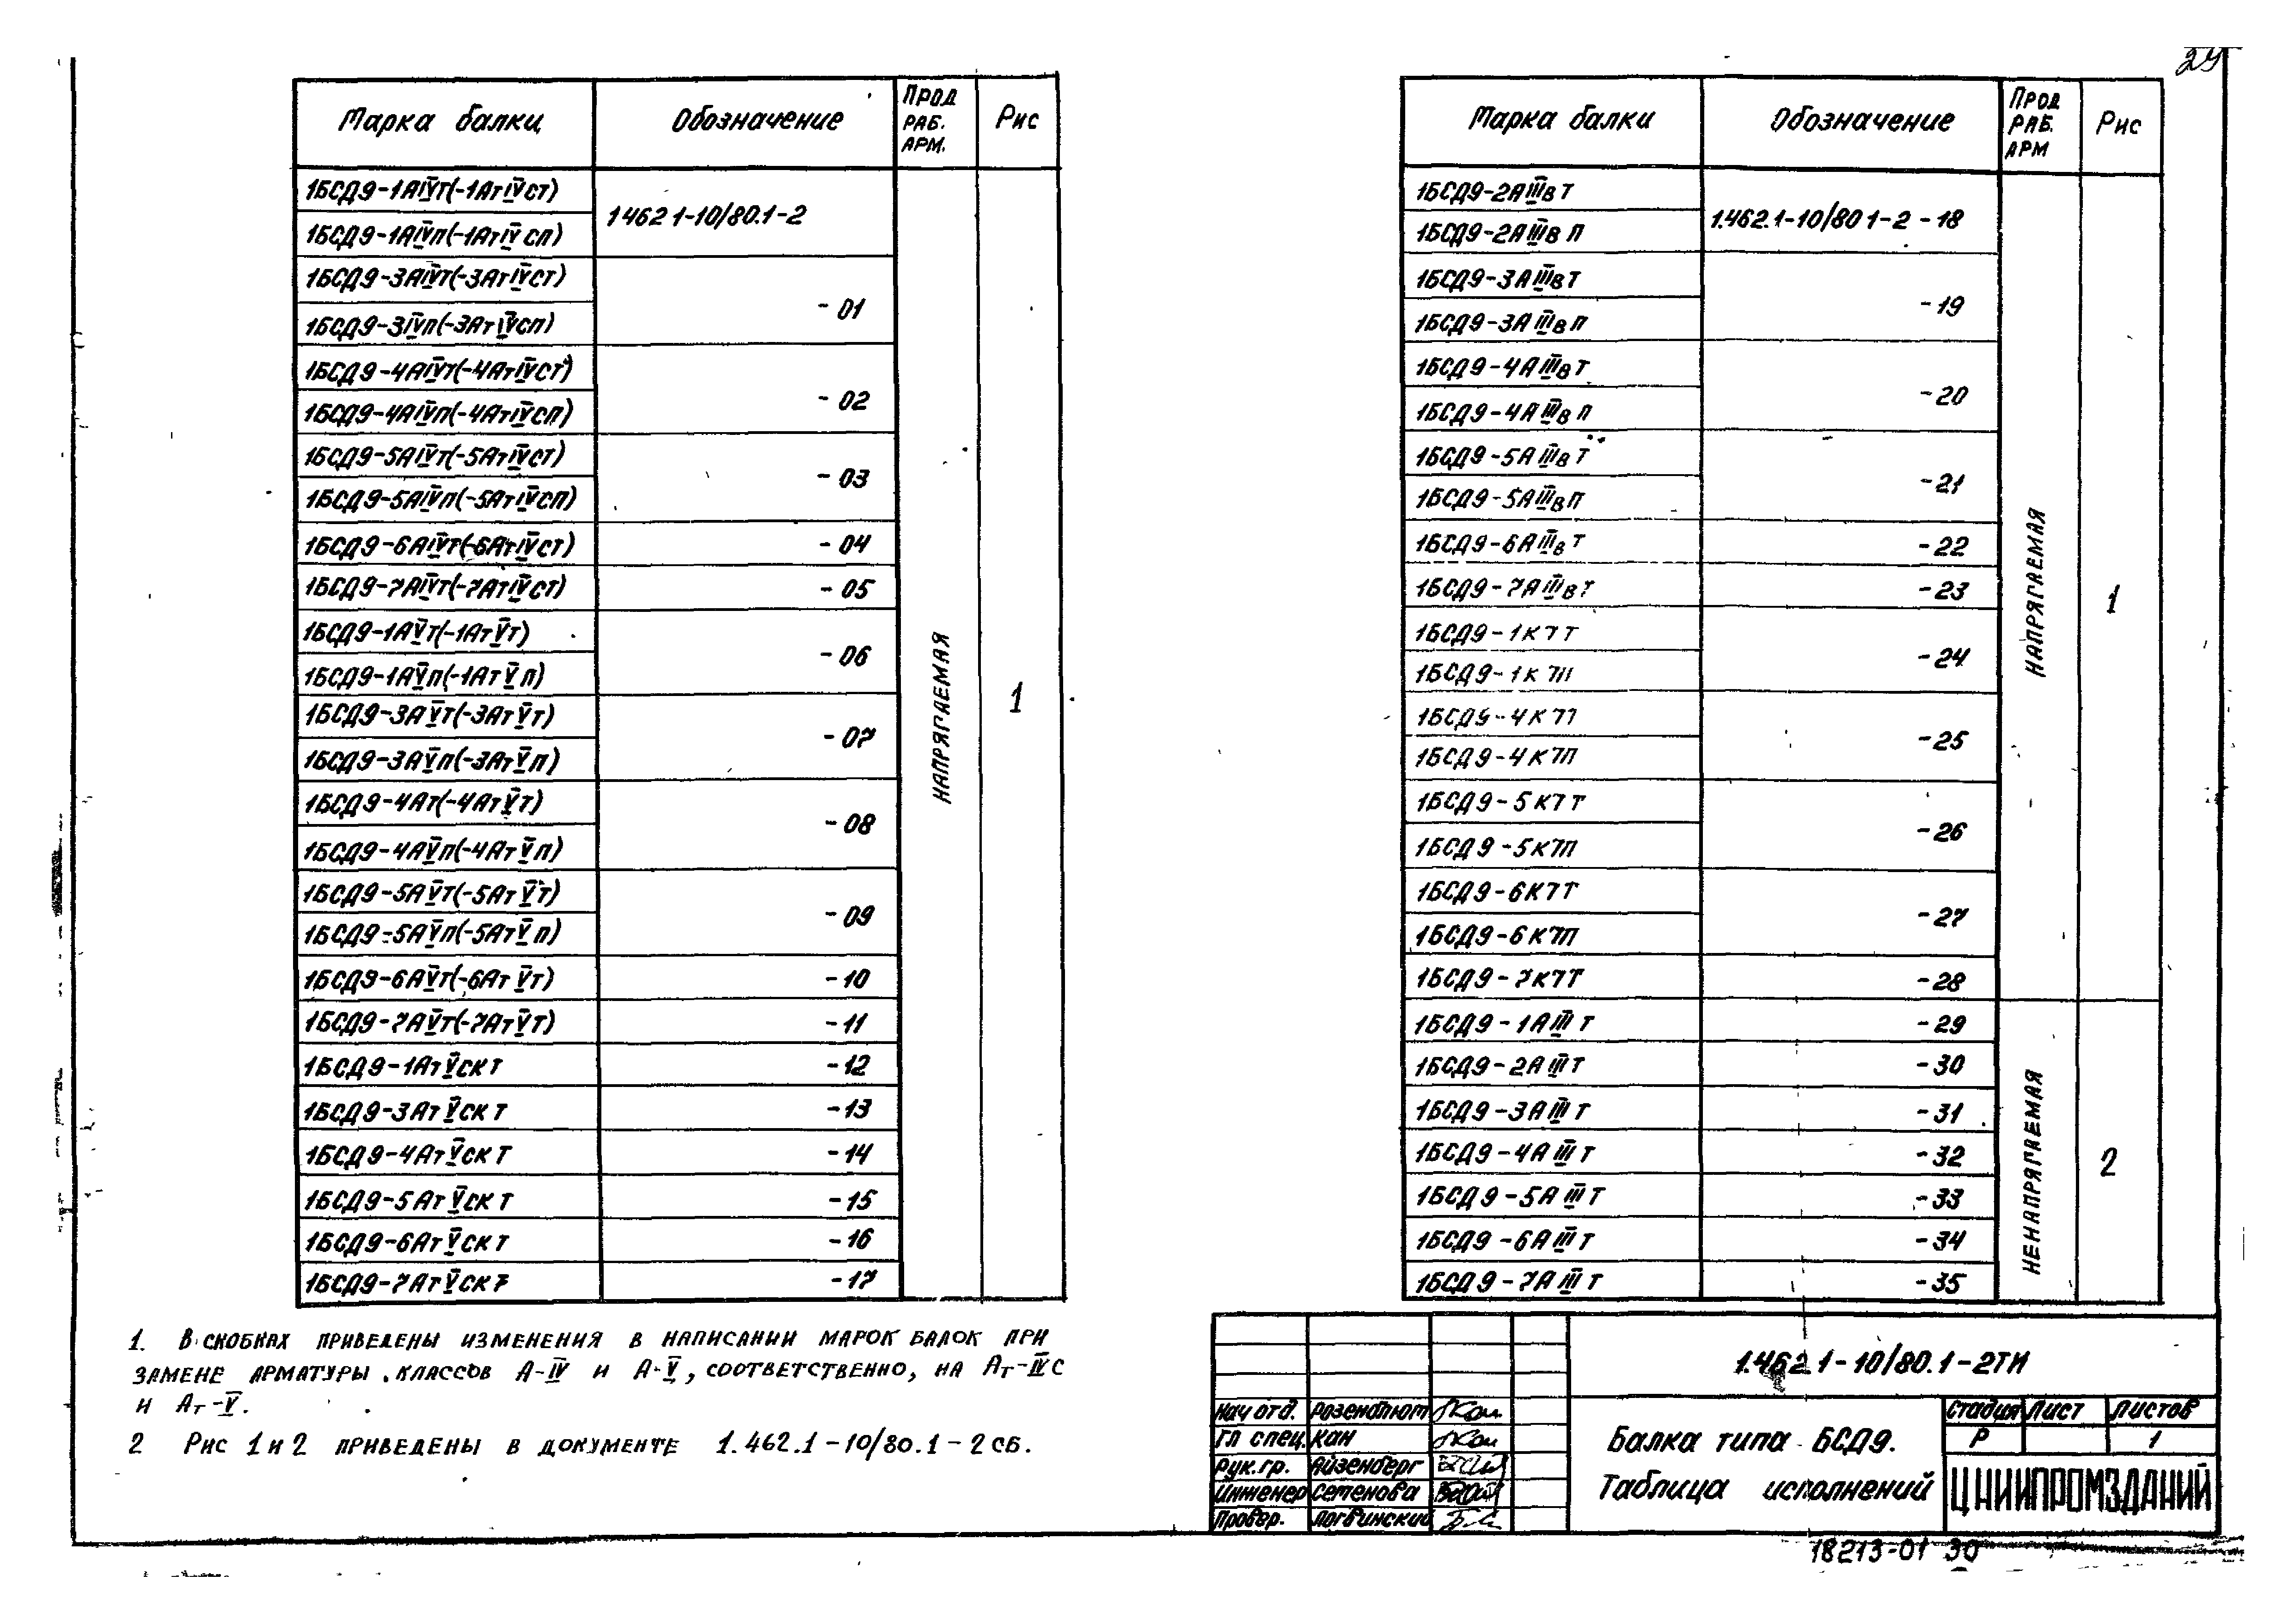 29
Марка балки Обозначение Прод раб. арм. Рис
1БСД9-1АIVТ(-1АтIVСТ) 1 462 1-10/80.1-2
1БСД9-1АIVП(-1АтIVСП)
1БСД9-3АIVТ(-3АтIVСТ) -01
1БСД9-3IVП(-3АтIVСП)
1БСД9-4АIVТ(-4АтIVСТ) -02
1БСД9-4АIVП(-4АтIVСП)
1БСД9-5АIVТ(-5АтIVСТ) -03
1БСД9-5АIVП(-5АтIVСП)
1БСД9-6АIVТ(-6АтIVСТ) -04
1БСД9-7АIVТ(-7АтIVСТ) -05
1БСД9-1АVТ(-1АтVТ) -06
1БСД9-1АVП(-1АтVП)
1БСД9-3АVТ(-3АтVТ) -07
1БСД9-3АVП(-3АтVП)
1БСД9-4Ат(-4АтVТ) -08
1БСД9-4АVП(-4АтVП)
1БСД9-5АVТ(-5АтVТ) -09
1БСД9-5АVП(-5АтVП)
1БСД9-6АVТ(-6АтVТ) -10
1БСД9-7АVТ(-7АтVТ) -11
1БСД9-1АтVСКТ -12
1БСД9-3АтVСКТ -13
1БСД9-4АтVСКТ -14
1БСД9-5АтVСКТ -15
1БСД9-6АтVСКТ -16
1БСД9-7АтVСКТ -17
НАПРЯГАЕМАЯ
1
Марка балки Обозначение Прод раб. арм Рис
1БСД9-2АIIIвТ 1.462.1-10/80 1-2 -18
1БСД9-2АIIIвП
1БСД9-3АIIIвТ -19
1БСД9-3АIIIвП
1БСД9-4АIIIвТ -20
1БСД9-4АIIIвП
1БСД9-5АIIIвТ -21
1БСД9-5АIIIвП
1БСД9-6АIIIвТ -22
1БСД9-7АIIIвТ -23
1БСД9-1К7Т -24
1БСД9-1К7П
1БСД9-4К7Т -25
1БСД9-4К7П
1БСД9-5К7Т -26
1БСД9-5К7П
1БСД9-6К7Т -27
1БСД9-6К7П
1БСД9-7К7Т -28
1БСД9-1АIIIТ -29
1БСД9-2АIIIТ -30
1БСД9-3АIIIТ -31
1БСД9-4АIIIТ -32
1БСД9-5АIIIТ -33
1БСД9-6АIIIТ -34
1БСД9-7АIIIТ -35
НАПРЯГАЕМАЯ
1
НЕНАПРЯГАЕМАЯ
2
1. В скобках приведены изменения в написании марок балок при
замене арматуры классов А-IV и А-V, соответственно, на Ат-IVС
и Ат-V.
2 Рис 1 и 2 приведены в документе 1.462.1-10/80.1-2сб.
1.462 1-10/80.1-2ТИ
Нач отд. Розенблюм
Гл спец. Кан
Рук.гр. Айзенберг
Инженер Семенова
Провер. Логвинский
Балка типа БСД9.
Таблица исполнений
Стадия Лист Листов
Р 1
ЦНИИПРОМЗДАНИЙ
18213-01 30